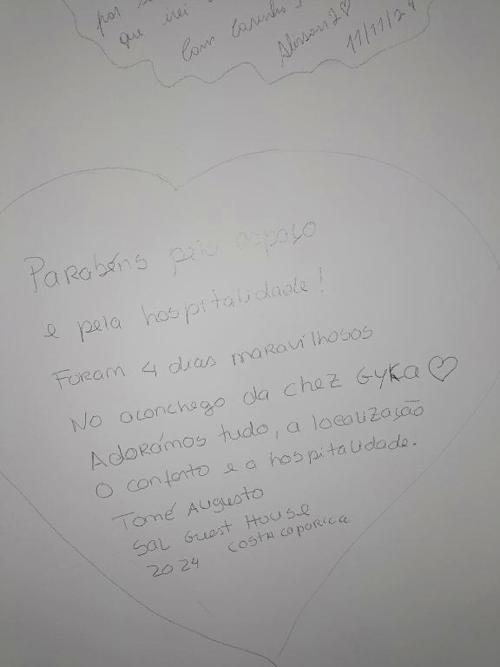 por
que irei
Com Carinho
11/11/24
Parabéns pelo espaço
e pela hospitalidade!
Foram 4 dias maravilhosos
No aconchego da chez Gyka ♡
Adorámos tudo, a localização
O conforto e a hospitalidade.
Tomé Augusto
Sal Guest House
2024 Costa Caparica